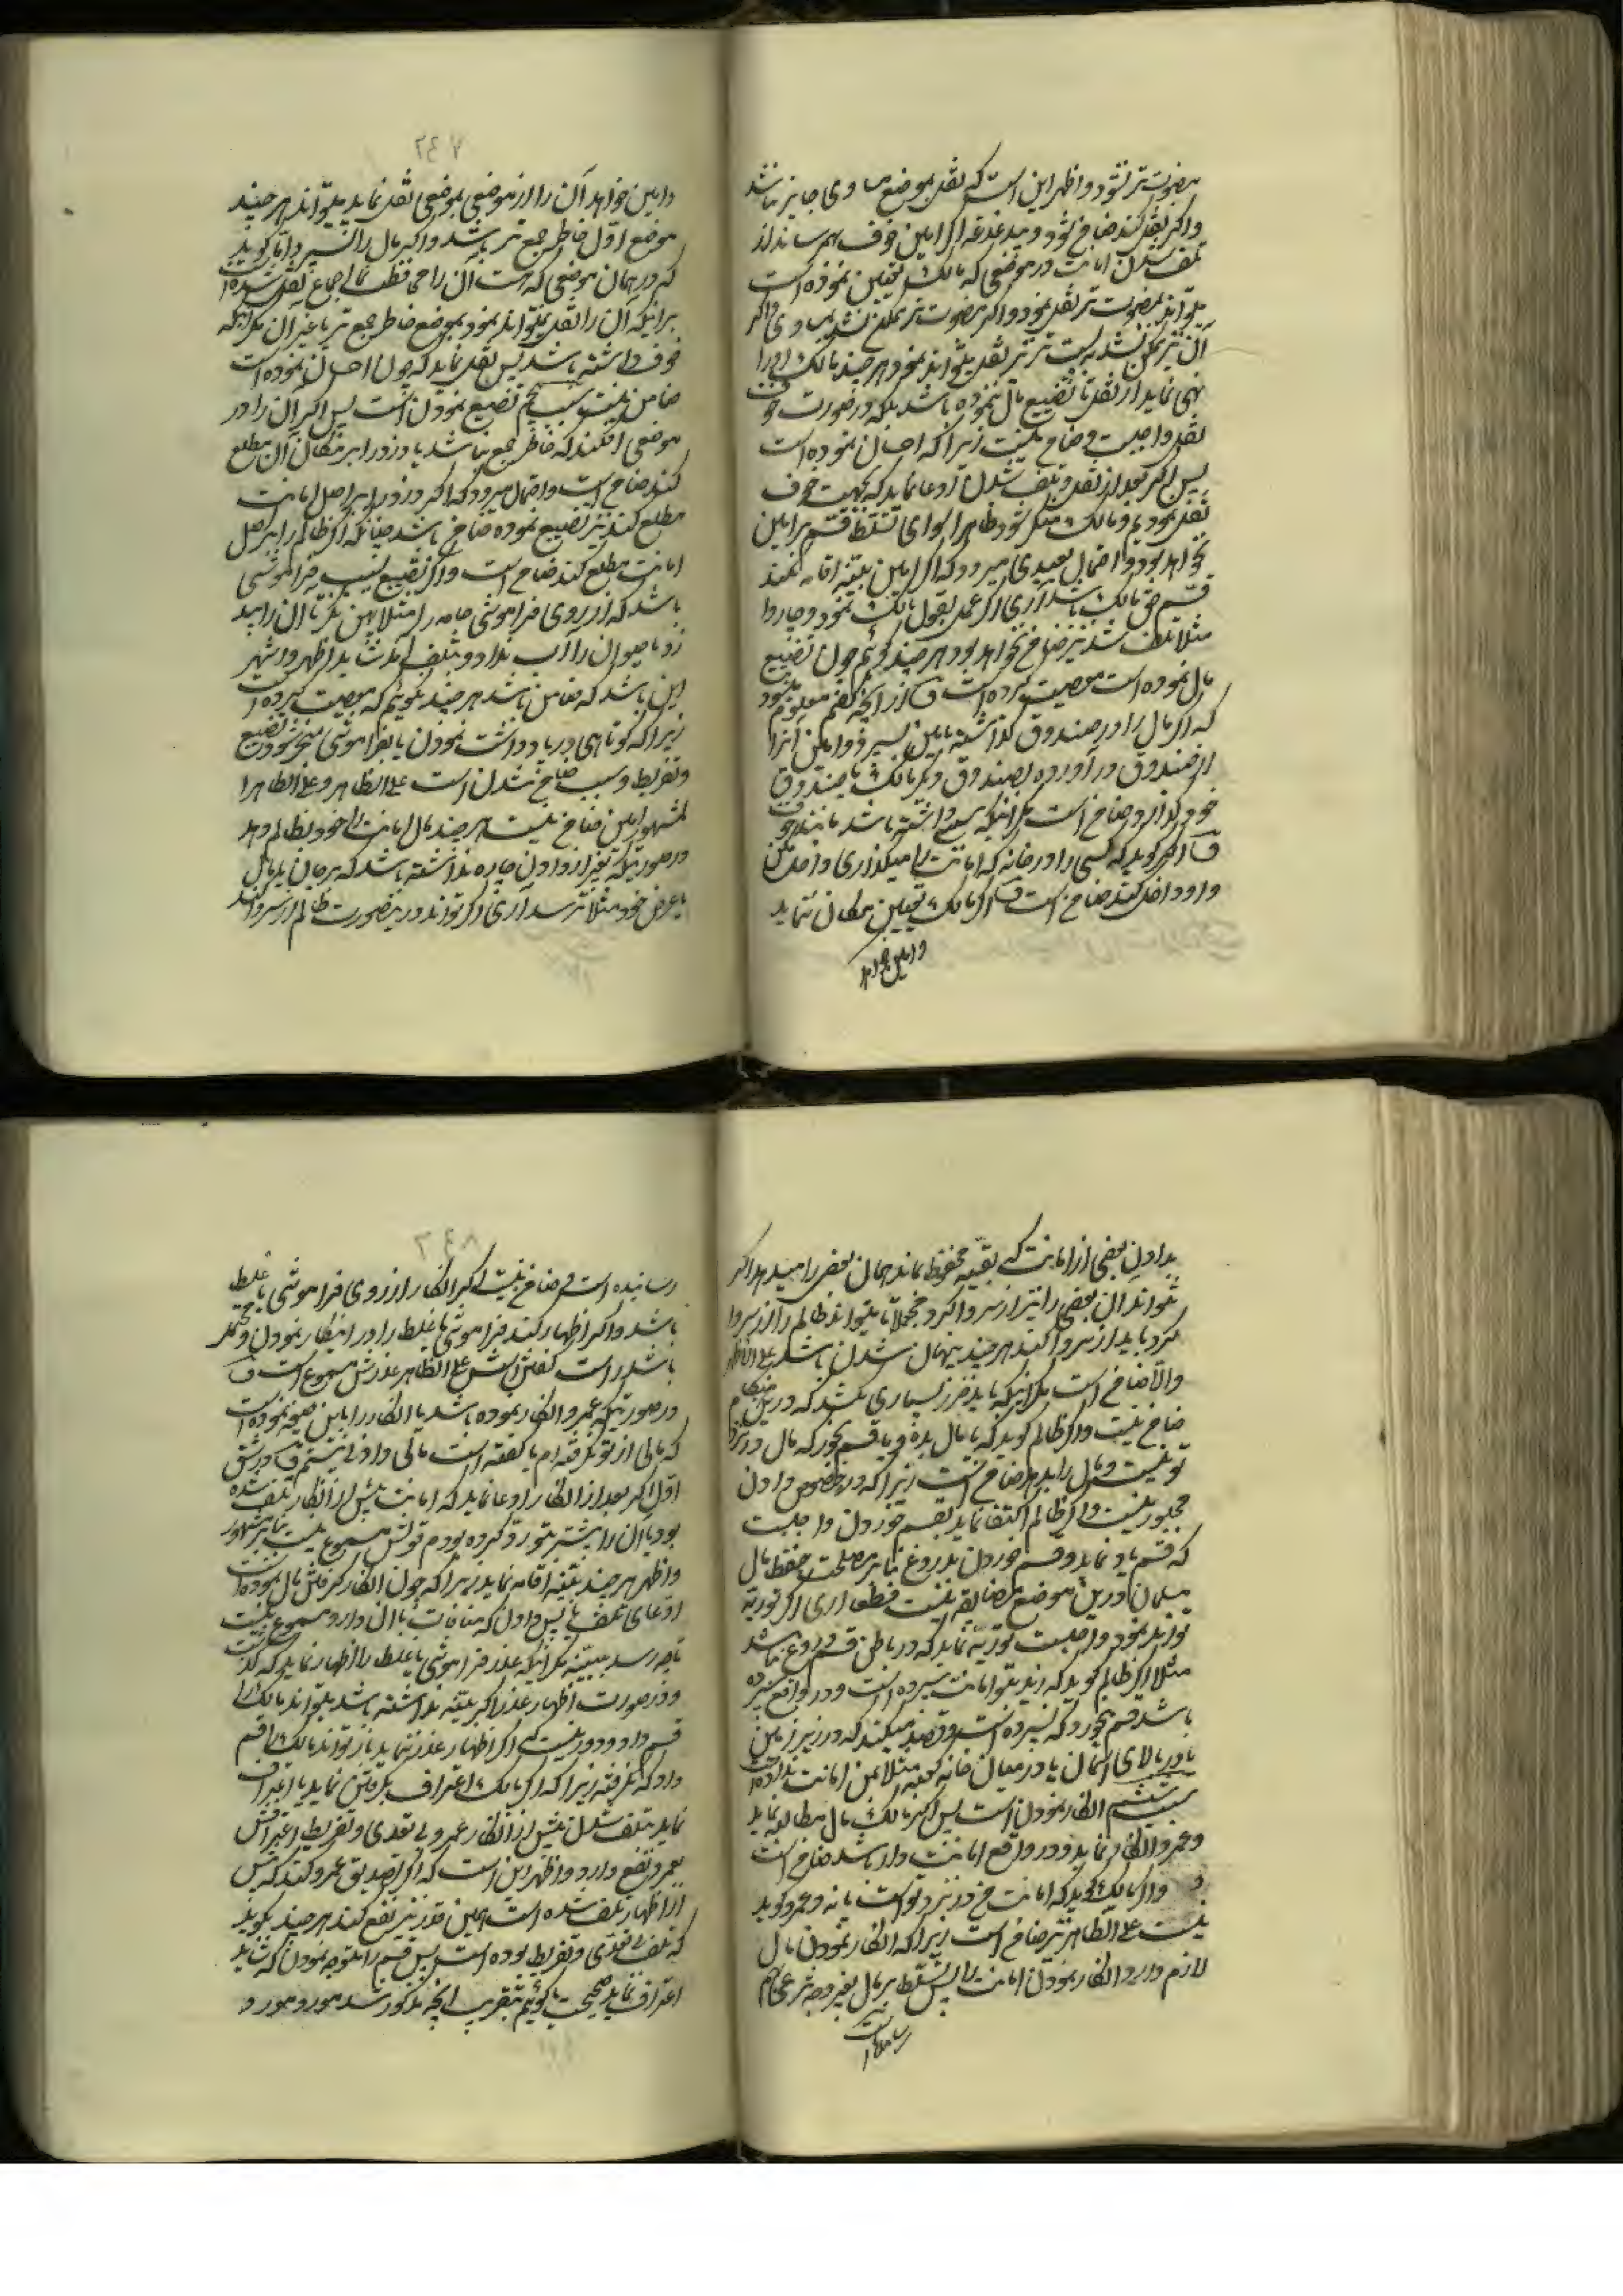 مضبوت‌تر شود و اظهر این است که نقل بموضع مساوی جایز نباشد
و اگر نقل کند ضامن شود و بدغدغه اگر امین خوف بهم رساند از
تلف شدن امانت در موضعی که مالک تعیین نموده است
میتواند بمضبوت‌تر نقل نمود و اگر مضبوت‌تر ممکن نشد بمساوی و اگر
آن نیز ممکن نشد به پست‌تر نیز نقل میتواند نمود هر چند مالک او را
نهی نماید از نقل تا تضییع مال ننموده باشد بلکه در صورت خوف
نقل واجبست و ضامن نیست زیرا که احسان نموده است
پس اگر بعد از نقل و تلف شدن ادعا نماید که بجهت خوف
نقل نمودم و مالک منکر شود ظاهرا سوای تسلط قسم بر امین
نخواهد بود و احتمال بعیدی میرود که اگر امین بینه اقامه نکند
قسم حق مالک باشد آری اگر عمل بقول مالک نمود و جاروا
مثلا تلف شد نیز ضامن نخواهد بود هر چند گوئیم چون تضییع
مال نموده است معصیت کرده است ف از آنچه گفتم معلوم میشود
که اگر مال را در صندوق گذاشته بامین سپرد و امین آنرا
از صندوق در آورده بصندوق دیگر مالک یا صندوق
خود گذارد ضامن است مگر اینکه سببی داشته باشد مانند خوف
ف اگر گوید که کسی را در خانه که امانت را میگذاری داخل مکن
و او داخل کند ضامن است ف اگر مالک تعیین مکان ننماید
و امین خواهد
۷٤۲
و امین خواهد آن را از موضعی بموضعی نقل نماید میتواند هر چند
موضع اول خاطر جمع‌تر باشد و اگر مال را سپرد و آنا گوید
که در همان موضعی که هست آن را محافظت نما اجماع نقل شده است
بر اینکه آن را نقل نمیتواند نمود بموضع خاطر جمع‌تر یا غیر آن مگر اینکه
خوف داشته باشد پس نقل نماید که چون احسان نموده است
ضامن نیست سبب پنجم تضییع نمودن است پس اگر آن را در
موضعی افکند که خاطر جمع نباشد یا دزد را بر مکان آن مطلع
کند ضامن است و احتمال میرود که اگر دزد را بر اصل امانت
مطلع کند نیز تضییع نموده ضامن باشد چنانکه اگر ظالم را بر اصل
امانت مطلع کند ضامن است و اگر تضییع بسبب فراموشی
باشد که از روی فراموشی جامه را مثلا پهن نکرد تا آن را بید
زد یا حیوان را آب نداد و تلف آمد شاید اظهر و اشهر
این باشد که ضامن باشد هر چند نگوئیم که معصیت کرده است
زیرا که کوتاهی در یاد داشت نمودن یا بفراموشی منجر شود تضییع
و تفریط و سبب ضامن شدن است علی الظاهر و علی الظاهر
المشهور امین ضامن نیست هر چند مال امانت را خود بظالم دهد
در صورتیکه بغیر از دادن چاره نداشته باشد که بر جان یا مال
یا عرض خود مثلا ترسد آری اگر تواند در نصورت ظالم را از سر وا کند
بدادن بعضی از امانت که بقیه محفوظ ماند همان بعض را میدهد اگر
نتواند آن بعضی را نیز از سر وا کرد مجملا تا میتواند ظالم را از سر وا
کرد باید از سر وا کند هر چند به پنهان شدن باشد علی الظاهر
و الا ضامن است مگر اینکه باید ضرر بسیاری بکشد که در این هنگام
ضامن نیست و اگر ظالم گوید که یا مال بده و یا قسم بخور که مال در نزد
تو نیست و مال را بدهد ضامن است زیرا که در خصوص دادن
مجبور نیست و اگر ظالم اکتفا نماید بقسم خوردن واجبست
که قسم یاد نماید و قسم خوردن بدروغ بنا بر مصلحت حفظ مال
مسلمان در این موضع مضایقه نیست قطعا آری اگر توریه
تواند نمود واجبست توریه نماید که در باطن قسم دروغ نباشد
مثلا اگر ظالم گوید که زید بتو امانت سپرده است و در واقع سپرده
باشد قسم بخورد که نسپرده است و قصد میکند که در زیر زمین
یا در بالای آسمان یا در میان خانه کعبه مثلا بمن امانت نداده است
سبب ششم انکار نمودن است پس اگر مالک مال مطالبه نماید
و عمرو انکار نماید و در واقع امانت دار باشد ضامن است
و اگر مالک گوید که امانت من در نزد تو است یا نه و عمرو گوید
نیست علی الظاهر نیز ضامن است زیرا که انکار نمودن مال
لازم دارد انکار نمودن امانت را پس تسلط بر مال بغیر وجه شرعی بهم
رسانیده است
۷٤۸
رسانیده است و ضامن نیست که اگر انکار از روی فراموشی یا غلط
باشد و اگر اظهار کند فراموشی یا غلط را در انکار نمودن و محتمل
باشد راست گفتنش علی الظاهر عذرش مسموع است ف
در صورتیکه عمرو انکار نموده باشد یا انکار را باین صیغه نموده است
که مالی از تو نگرفته‌ام یا گفته است مالی داد نیستم ف در شق
اول اگر بعد از انکار ادعا نماید که امانت پیش از انکار تلف شده
بود یا آن را پیشتر بتو رد کرده بودم قولش مسموع نیست بنا بر مشهور
و اظهر هر چند بینه اقامه نماید زیرا که چون انکار گرفتن مال نموده است
ادعای تلف یا پس دادن که منافات با آن دارد مسموع نیست
تا چه رسد ببینه مگر اینکه عذر فراموشی یا غلط را اظهار نماید که گذشت
و در صورت اظهار عذر اگر بینه نداشته باشد میتواند مالک را
قسم داد و دور نیست که اگر اظهار عذر ننماید باز تواند مالک را قسم
داد که نگرفته زیرا که اگر مالک اعتراف بگرفتن نماید یا اعتراف
نماید بتلف شدن پیش از انکار عمرو بی تعدی و تفریط اعترافش
بعمرو نفع دارد و اظهر این است که اگر تصدیق عمرو کند که پیش
از اظهار تلف شده است همین قدر نیز نفع کند هر چند نگوید
که تلف بی تعدی و تفریط بوده است پس قسم را متوجه نمودن که شاید
اعتراف نماید صحیحست گوئیم بتقریب آنچه مذکور شد